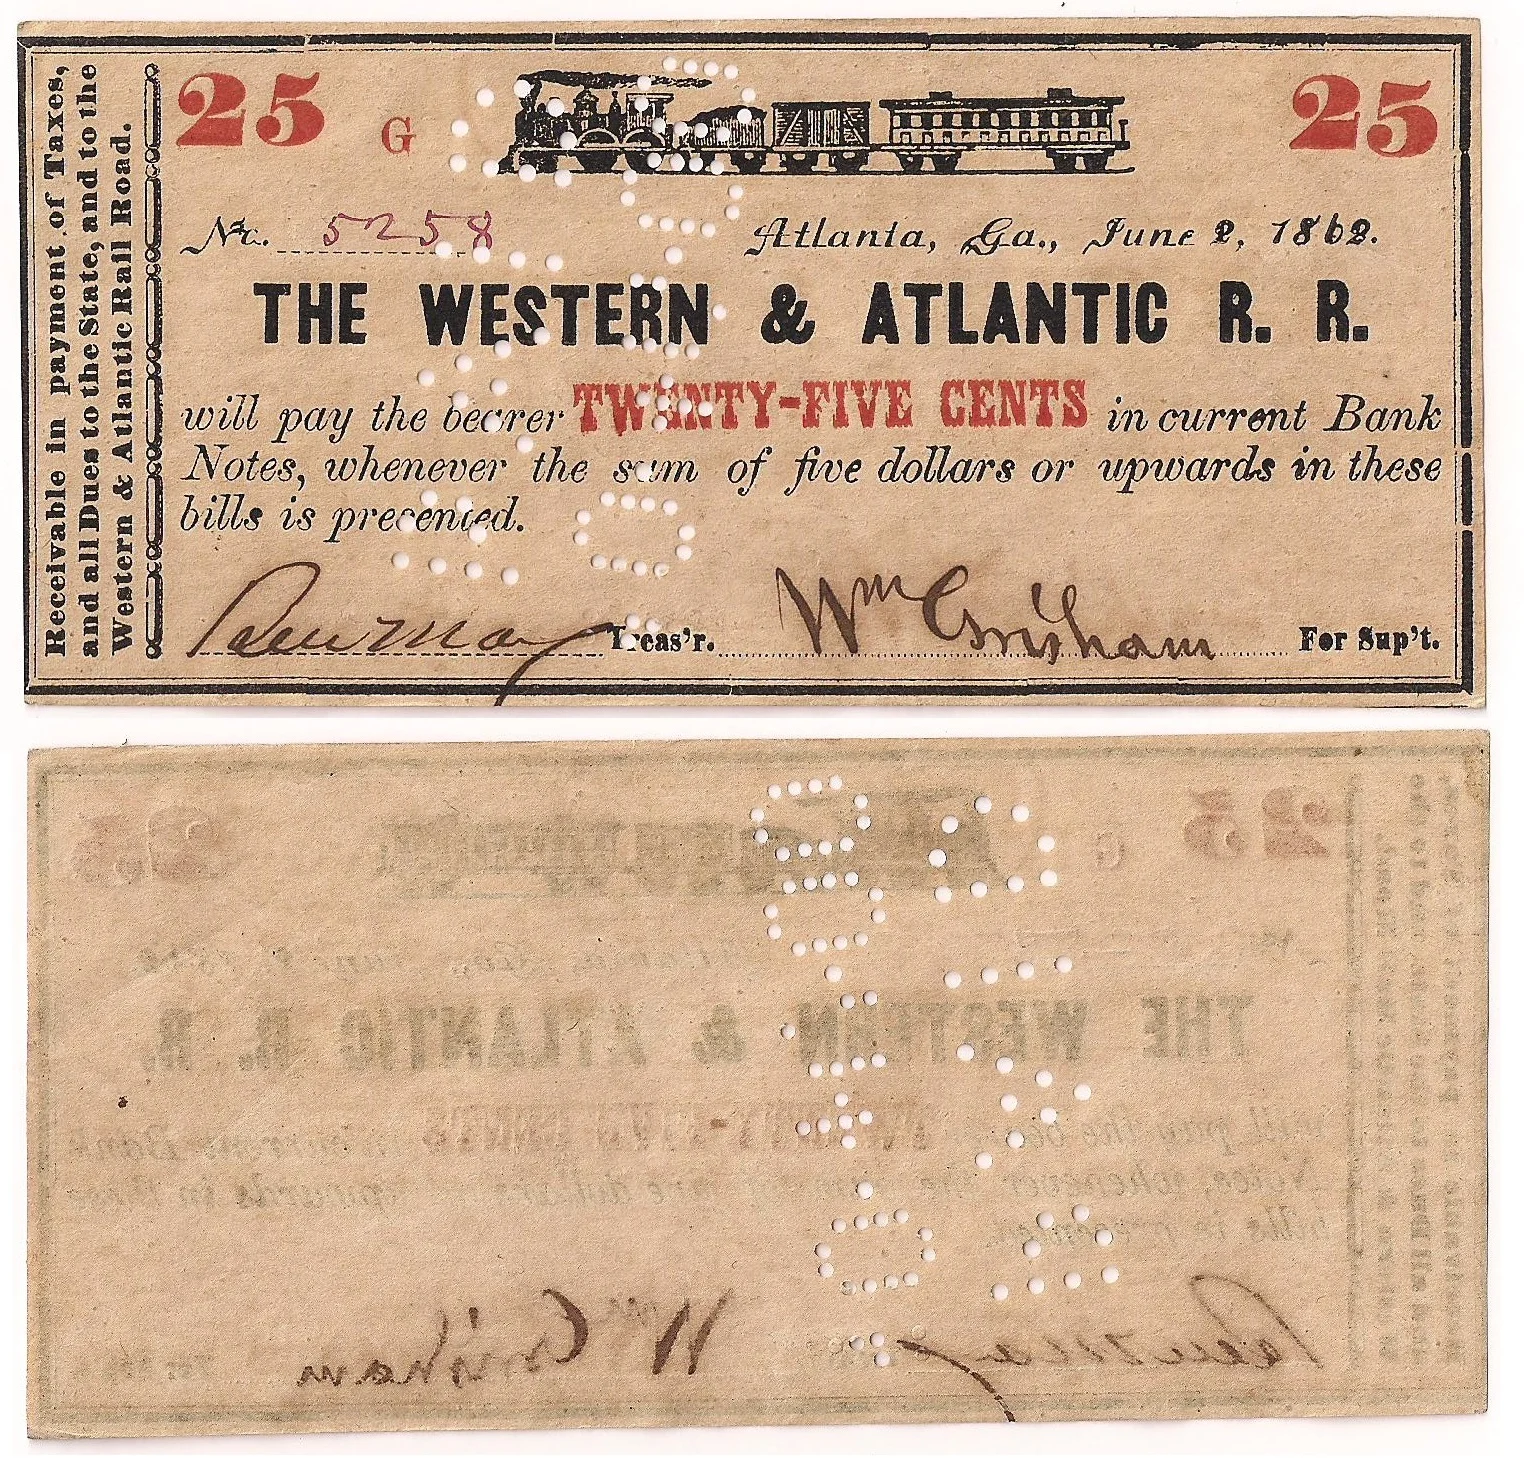 Receivable in payment of Taxes,
and all Dues to the State, and to the
Western & Atlantic Rail Road.
25 G 25
No. 5258 Atlanta, Ga., June 2, 1862.
THE WESTERN & ATLANTIC R. R.
will pay the bearer TWENTY-FIVE CENTS in current Bank
Notes, whenever the sum of five dollars or upwards in these
bills is presented.
Ben May Treas'r. Wm Grisham For Sup't.